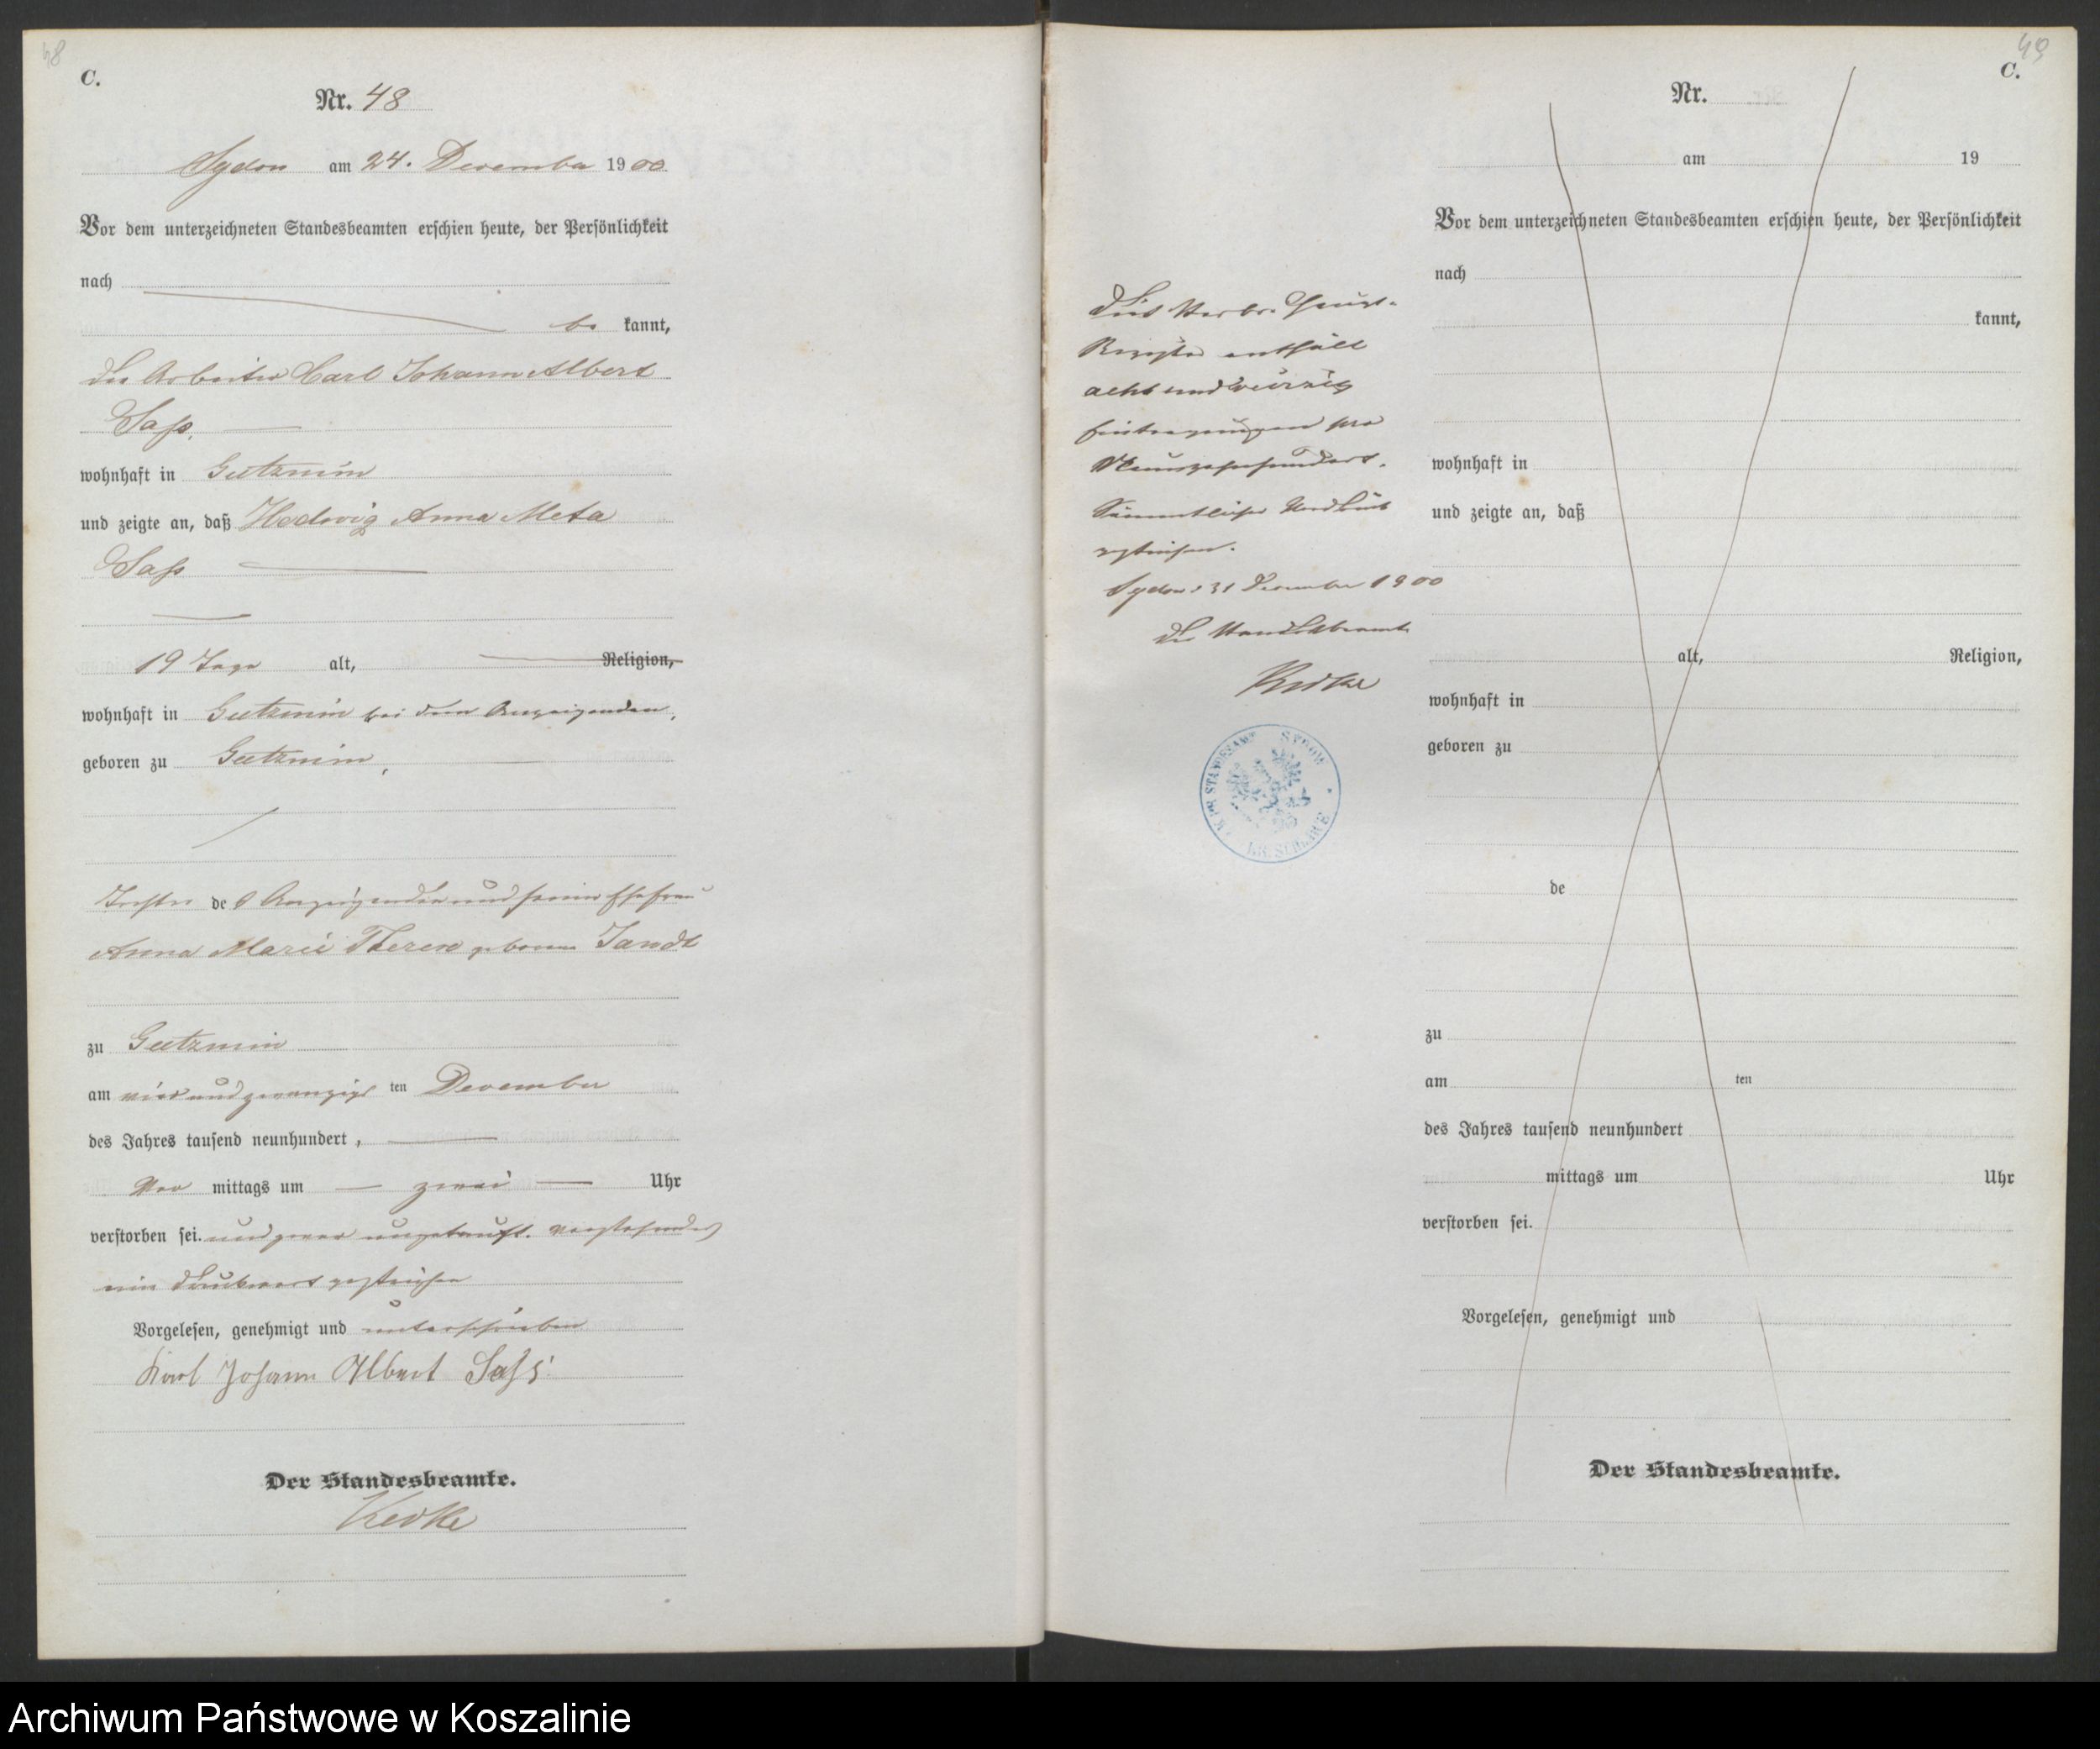 48
C.
Nr. 48
Sydow am 24. Dezember 1900
Vor dem unterzeichneten Standesbeamten erschien heute, der Persönlichkeit
nach
be kannt,
der Arbeiter Carl Johann Albert
Sass,
wohnhaft in Gutzmin
und zeigte an, daß Hedwig Anna Meta
Sass
19 Tage alt, Religion,
wohnhaft in Gutzmin bei dem Anzeigenden,
geboren zu Gutzmin,
Tochter des Anzeigenden und seiner Ehefrau
Anna Marie Therese geborene Jandt
zu Gutzmin
am vier und zwanzigs ten Dezember
des Jahres tausend neunhundert,
Vor mittags um zwei Uhr
verstorben sei. und zwar ungetauft. Vorstehendes
ein Druckwort gestrichen
Vorgelesen, genehmigt und unterschrieben
Karl Johann Albert Sass
Der Standesbeamte.
49
C.
Nr.
am 19
Vor dem unterzeichneten Standesbeamten erschien heute, der Persönlichkeit
nach
kannt,
wohnhaft in
und zeigte an, daß
alt, Religion,
wohnhaft in
geboren zu
de
zu
am ten
des Jahres tausend neunhundert
mittags um Uhr
verstorben sei.
Vorgelesen, genehmigt und
Der Standesbeamte.
Dies Sterbe-Haupt-
Register enthält
acht und vierzig
Eintragungen pro
Neunzehnhundert.
gestrichen.
Sydow 31 Dezember 1900
Der Standesbeamte
STANDESAMT SYDOW
KR. SCHLAWE
Archiwum Państwowe w Koszalinie